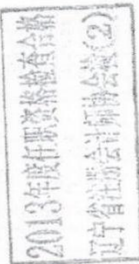 2013年度任职资格检查合格
辽宁省注册会计师协会(2)